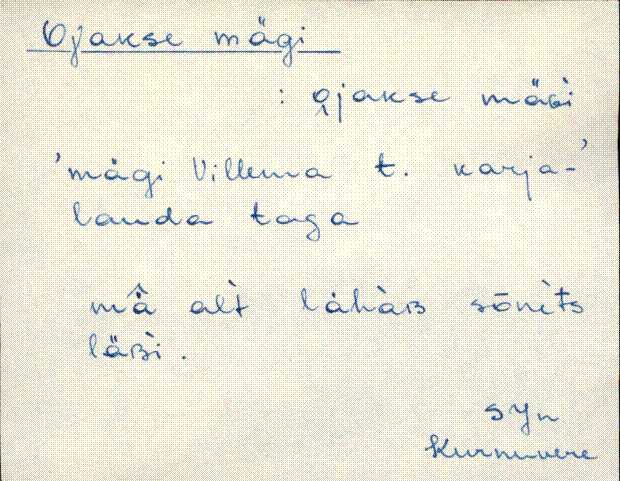 Ojakse mägi
: o̭jakse mäGì
'mägi Villema t. karja-'
lauda taga
mâ̬ alt̀ làhàB sōnìt̀s
läBì.
SJn
Kurnuvere